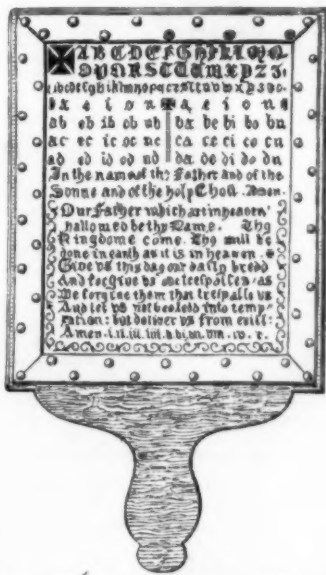 ABCDEFGHIKLMN
OPQRSTUWXYZ
a e i o u a e i o u
ab eb ib ob ub ba be bi bo bu
ac ec ic oc uc ca ce ci co cu
ad ed id od ud da de di do du
In the name of the Father and of the
Sonne and of the holy Ghost. Amen.
Our Father which art in heaven
hallowed be thy Name. Thy
Kingdome come. Thy will be
done in earth as it is in heaven.
Give us this day our daily bread
And forgive us our trespasses as
We forgive them that trespasse us
And let us not be led into temp
tation: but deliver us from evill:
Amen. i. ii. iii. iiii. v. vi. vii. viii. ix. x.